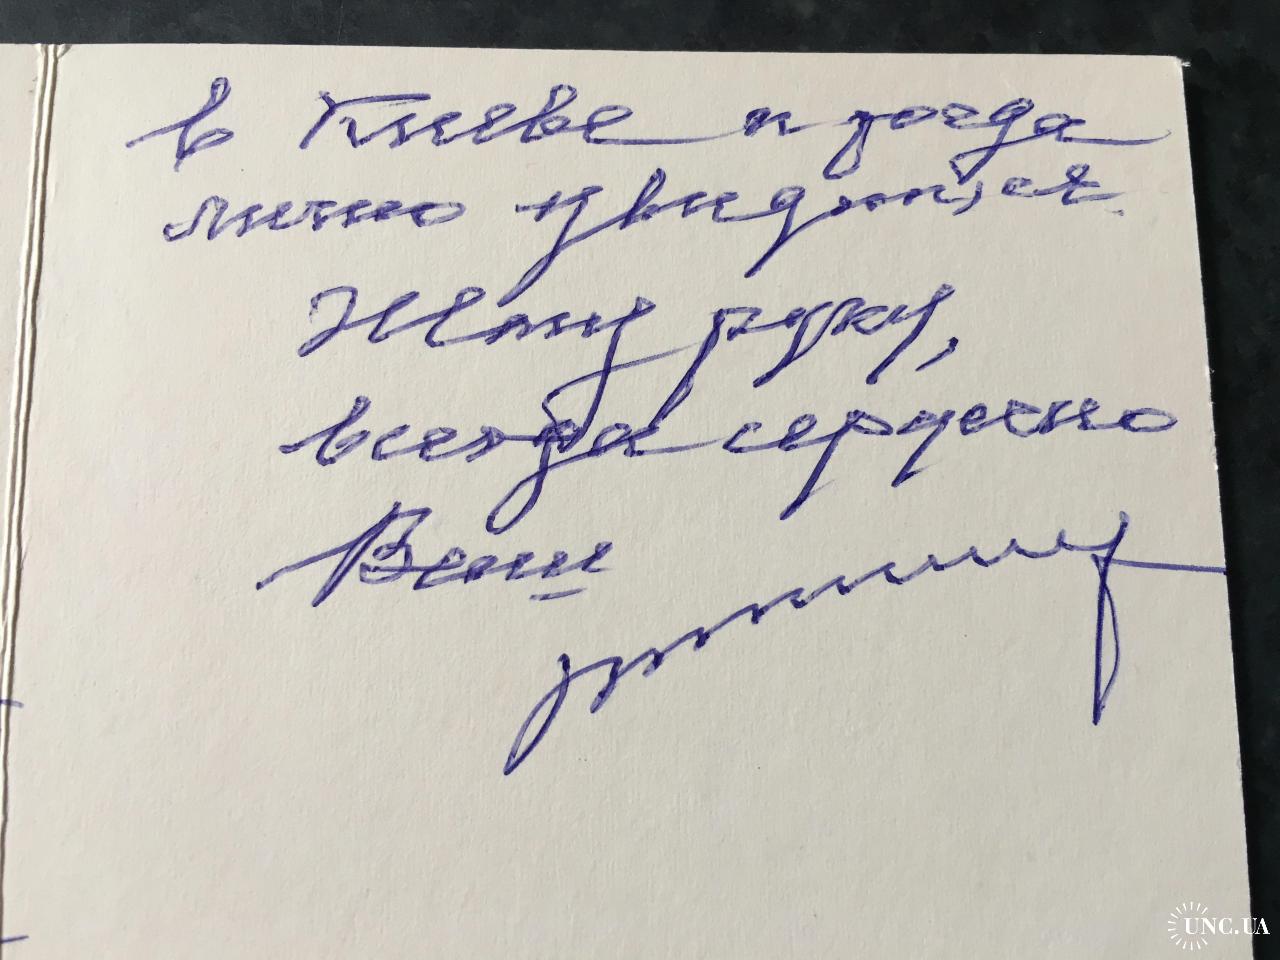 в Киеве и тогда
лично увидимся.
Жму руку,
всегда сердечно
Ваш
UNC.UA